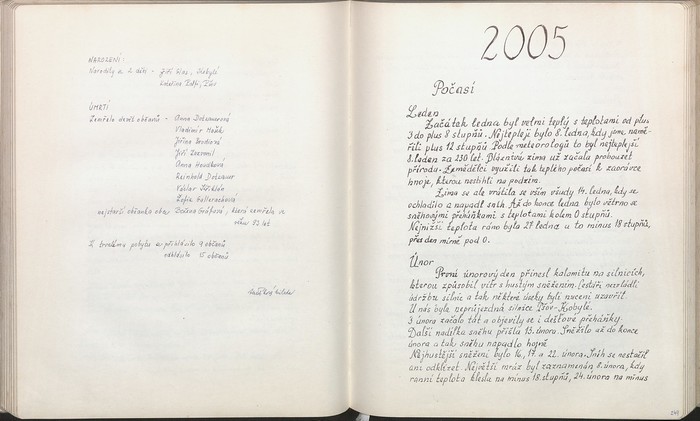 NAROZENÍ:
Narodily se 2 děti - Jiří
ÚMRTÍ
Zemřelo devět občanů - Anna
Vladimír
Jiřina
Jiří
Anna Houšková
Reinhold
Václav
Žofie
nejstarší občanka obce Božena Gráfová, která zemřela ve
věku 93 let
K trvalému pobytu se přihlásilo 9 občanů
odhlásilo 5 občanů
2005
Počasí
Leden
Začátek ledna byl velmi teplý s teplotami od plus
3 do plus 8 stupňů. Nejtepleji bylo 8. ledna, kdy jsme namě-
řili plus 12 stupňů. Podle meteorologů to byl nejteplejší
8. leden za 230 let. Bláznivou zimu už začala probouzet
přírodu. Zemědělci využili tak teplého počasí k zaorávce
hnoje, kterou nestihli na podzim.
Zima se ale vrátila se vším všudy 14. ledna, kdy se
ochladilo a napadl sníh. Až do konce ledna bylo větrno se
sněhovými přeháňkami s teplotami kolem 0 stupňů.
Nejnižší teplota ráno byla 27. ledna a to mínus 18 stupňů,
přes den mírně pod 0.
Únor
První únorový den přinesl kalamitu na silnicích,
kterou způsobil vítr s hustým sněžením. Cestáři nezvládli
údržbu silnic a tak některé úseky byli nuceni uzavřít.
U nás byla neprůjezdná silnice Pšov-Kobylé.
3. února začalo tát a objevily se i dešťové přeháňky.
Další nadílka sněhu přišla 13. února. Sněžilo až do konce
února a tak sněhu napadlo hojně.
Nejhustější sněžení bylo 16, 17. a 22. února. Sníh se nestačil
ani odklízet. Největší mráz byl zaznamenán 8. února, kdy
ranní teplota klesla na mínus 18 stupňů, 24. února na mínus